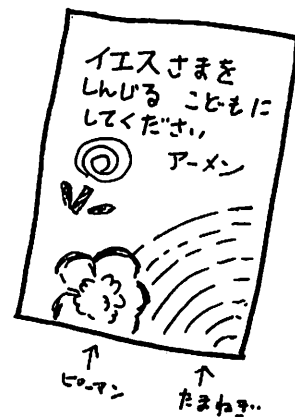 イエスさまを
しんじる こどもに
してください
アーメン
ピーマン
たまねぎ